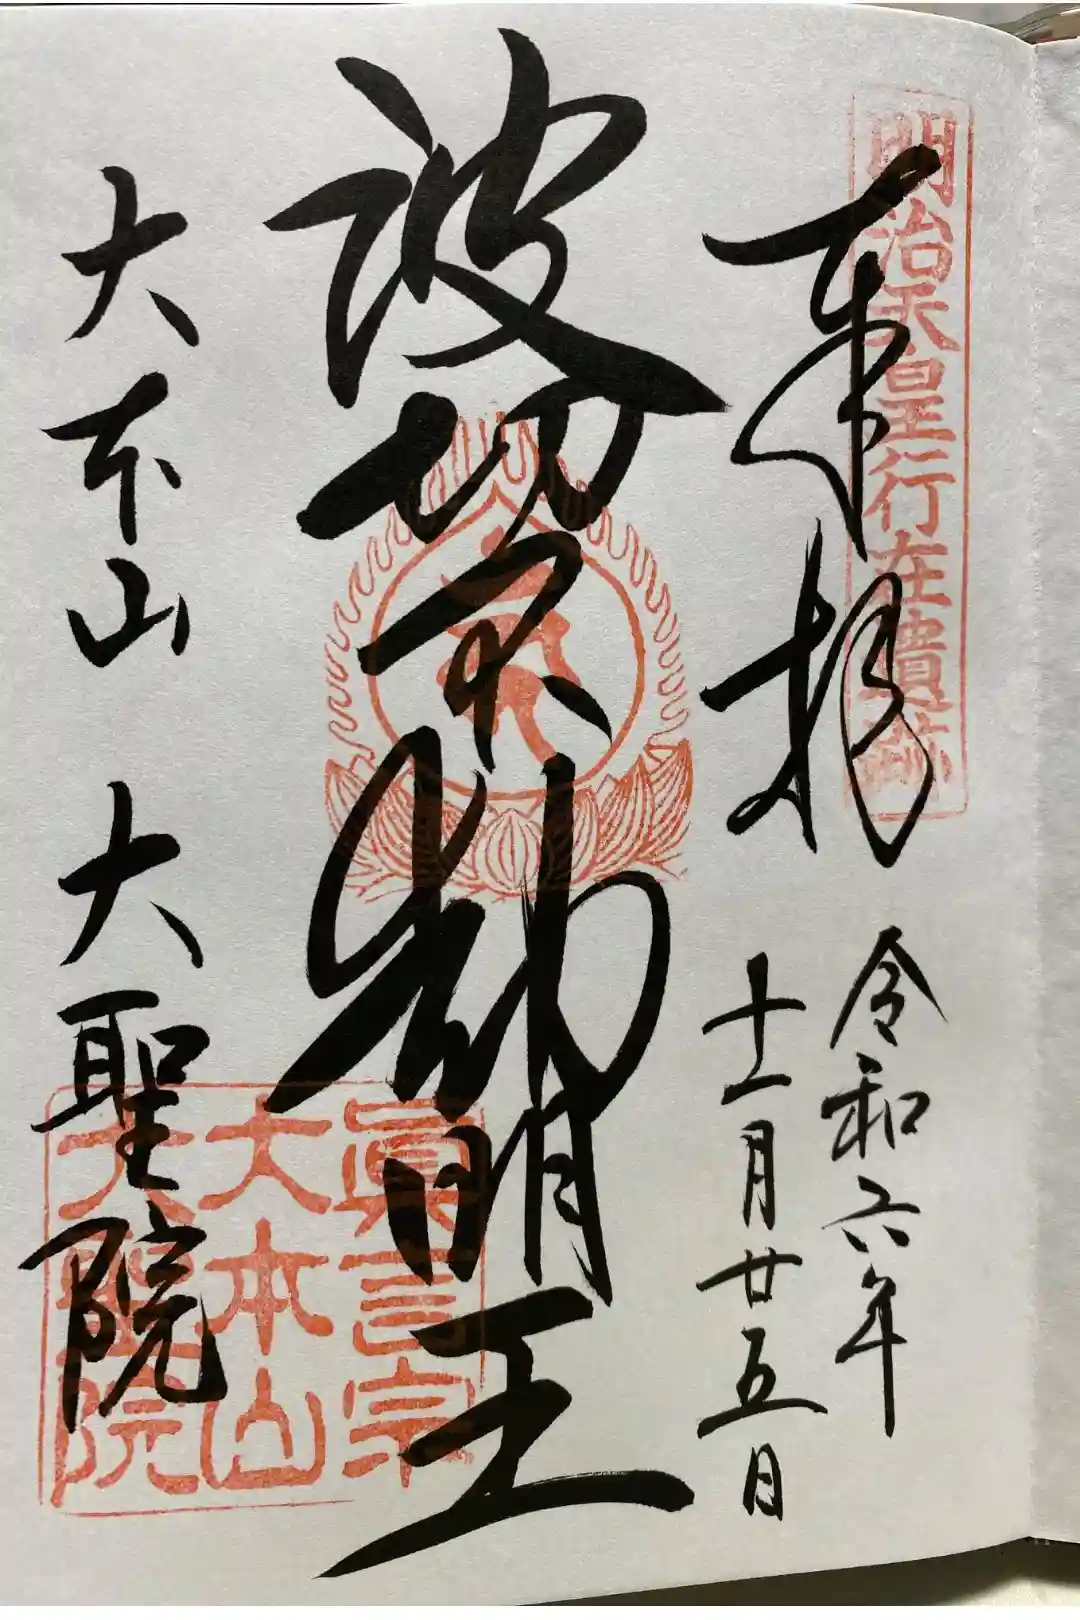 明治天皇行在遺蹟
奉拝
令和六年
十一月廿五日
波切不動明王
大本山 大聖院
眞言宗
大本山
大聖院